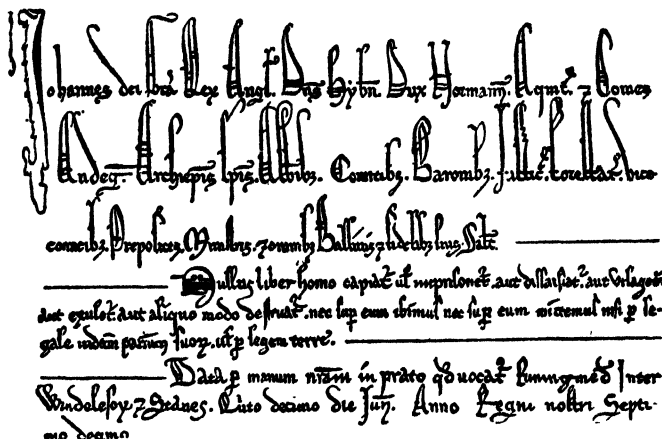 Johannes dei Gra Rex Angl. Dns Hybn. Dux Normann. Aquit. ⁊ Comes
Andeg. Archiepis Epis Abbibz. Comitibz. Baronibz. Justic. forestar. vice
comitibz. Prepositis. Ministris. ⁊ omnibz Ballivis ⁊ fidelibz suis. Salt.
Nullus liber homo capiat. ul inprisonet. aut dissaisiat. aut utlaget
aut exulet. aut aliquo modo destruat. nec sup eum ibimus nec sup eum mittemus nisi p le-
gale judm parium suorz. ul p legem terre.
Data p manum nram in prato qd vocat Runingmed Inter
Windelesor. ⁊ Stanes. Quto decimo die Jun. Anno Regni nostri Septi-
mo decimo